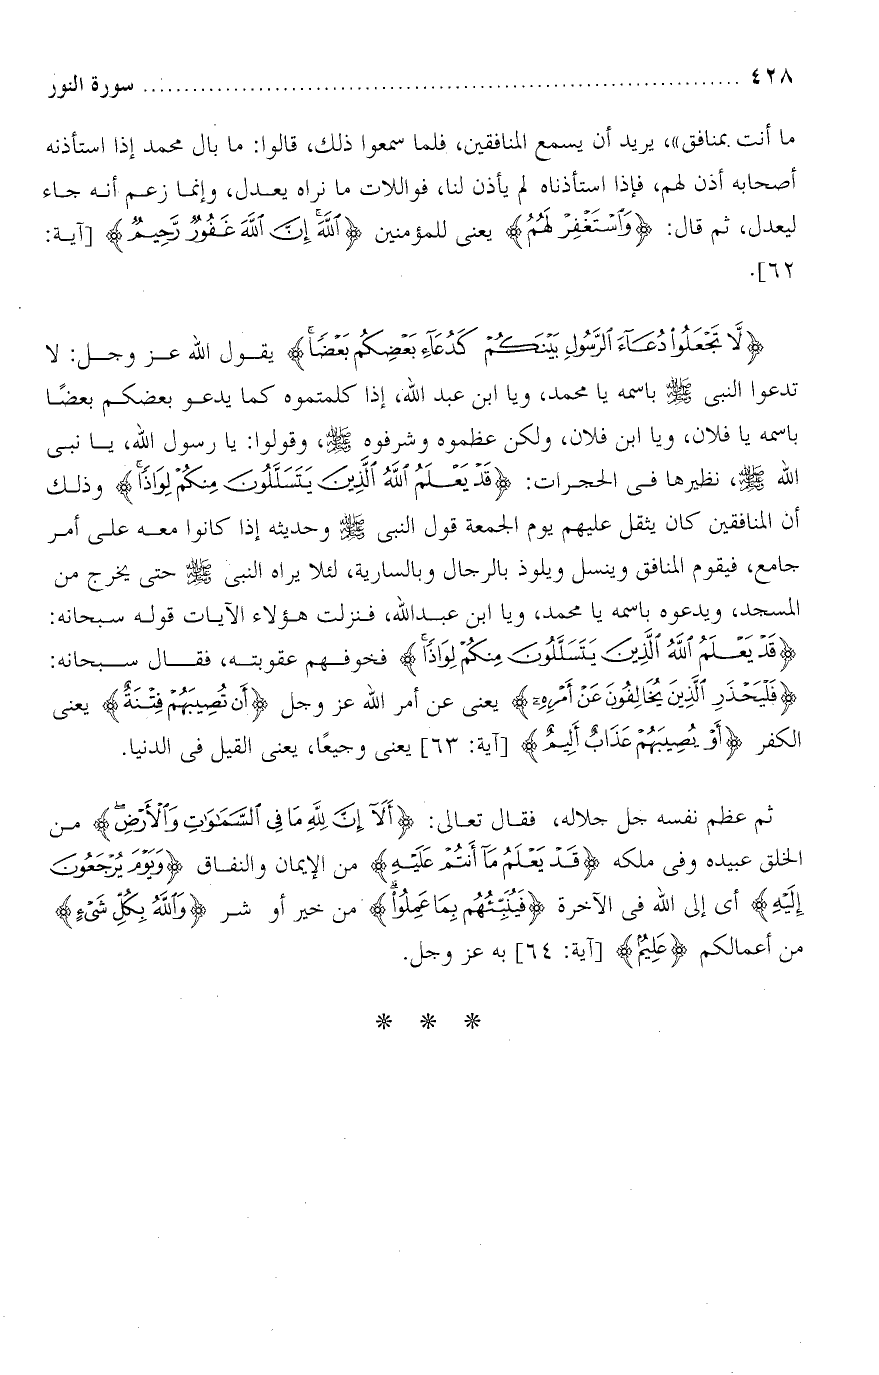 ٤٢٨ ........................................................................ سورة النور
ما أنت بمنافق»، يريد أن يسمع المنافقين، فلما سمعوا ذلك، قالوا: ما بال محمد إذا استأذنه
أصحابه أذن لهم، فإذا استأذناه لم يأذن لنا، فواللات ما نراه يعدل، وإنما زعم أنه جاء
ليعدل، ثم قال: ﴿وَٱسْتَغْفِرْ لَهُمُ﴾ يعنى للمؤمنين ﴿ٱللَّهَۚ إِنَّ ٱللَّهَ غَفُورٌ رَّحِيمٌ﴾ [آية:
٦٢].
﴿لَّا تَجْعَلُوا۟ دُعَآءَ ٱلرَّسُولِ بَيْنَكُمْ كَدُعَآءِ بَعْضِكُم بَعْضًاۚ﴾ يقول الله عز وجل: لا
تدعوا النبى ﷺ باسمه يا محمد، ويا ابن عبد الله، إذا كلمتموه كما يدعو بعضكم بعضًا
باسمه يا فلان، ويا ابن فلان، ولكن عظموه وشرفوه ﷺ، وقولوا: يا رسول الله، يا نبى
الله ﷺ، نظيرها فى الحجرات: ﴿قَدْ يَعْلَمُ ٱللَّهُ ٱلَّذِينَ يَتَسَلَّلُونَ مِنكُمْ لِوَاذًاۚ﴾ وذلك
أن المنافقين كان يثقل عليهم يوم الجمعة قول النبى ﷺ وحديثه إذا كانوا معه على أمر
جامع، فيقوم المنافق وينسل ويلوذ بالرجال وبالسارية، لئلا يراه النبى ﷺ حتى يخرج من
المسجد، ويدعوه باسمه يا محمد، ويا ابن عبدالله، فنزلت هؤلاء الآيات قوله سبحانه:
﴿قَدْ يَعْلَمُ ٱللَّهُ ٱلَّذِينَ يَتَسَلَّلُونَ مِنكُمْ لِوَاذًاۚ﴾ فخوفهم عقوبته، فقال سبحانه:
﴿فَلْيَحْذَرِ ٱلَّذِينَ يُخَالِفُونَ عَنْ أَمْرِهِۦٓ﴾ يعنى عن أمر الله عز وجل ﴿أَن تُصِيبَهُمْ فِتْنَةٌ﴾ يعنى
الكفر ﴿أَوْ يُصِيبَهُمْ عَذَابٌ أَلِيمٌ﴾ [آية: ٦٣] يعنى وجيعًا، يعنى القيل فى الدنيا.
ثم عظم نفسه جل جلاله، فقال تعالى: ﴿أَلَآ إِنَّ لِلَّهِ مَا فِى ٱلسَّمَٰوَٰتِ وَٱلْأَرْضِۖ﴾ من
الخلق عبيده وفى ملكه ﴿قَدْ يَعْلَمُ مَآ أَنتُمْ عَلَيْهِ﴾ من الإيمان والنفاق ﴿وَيَوْمَ يُرْجَعُونَ
إِلَيْهِ﴾ أى إلى الله فى الآخرة ﴿فَيُنَبِّئُهُم بِمَا عَمِلُوا۟ۗ﴾ من خير أو شر ﴿وَٱللَّهُ بِكُلِّ شَىْءٍ﴾
من أعمالكم ﴿عَلِيمٌۢ﴾ [آية: ٦٤] به عز وجل.
* * *